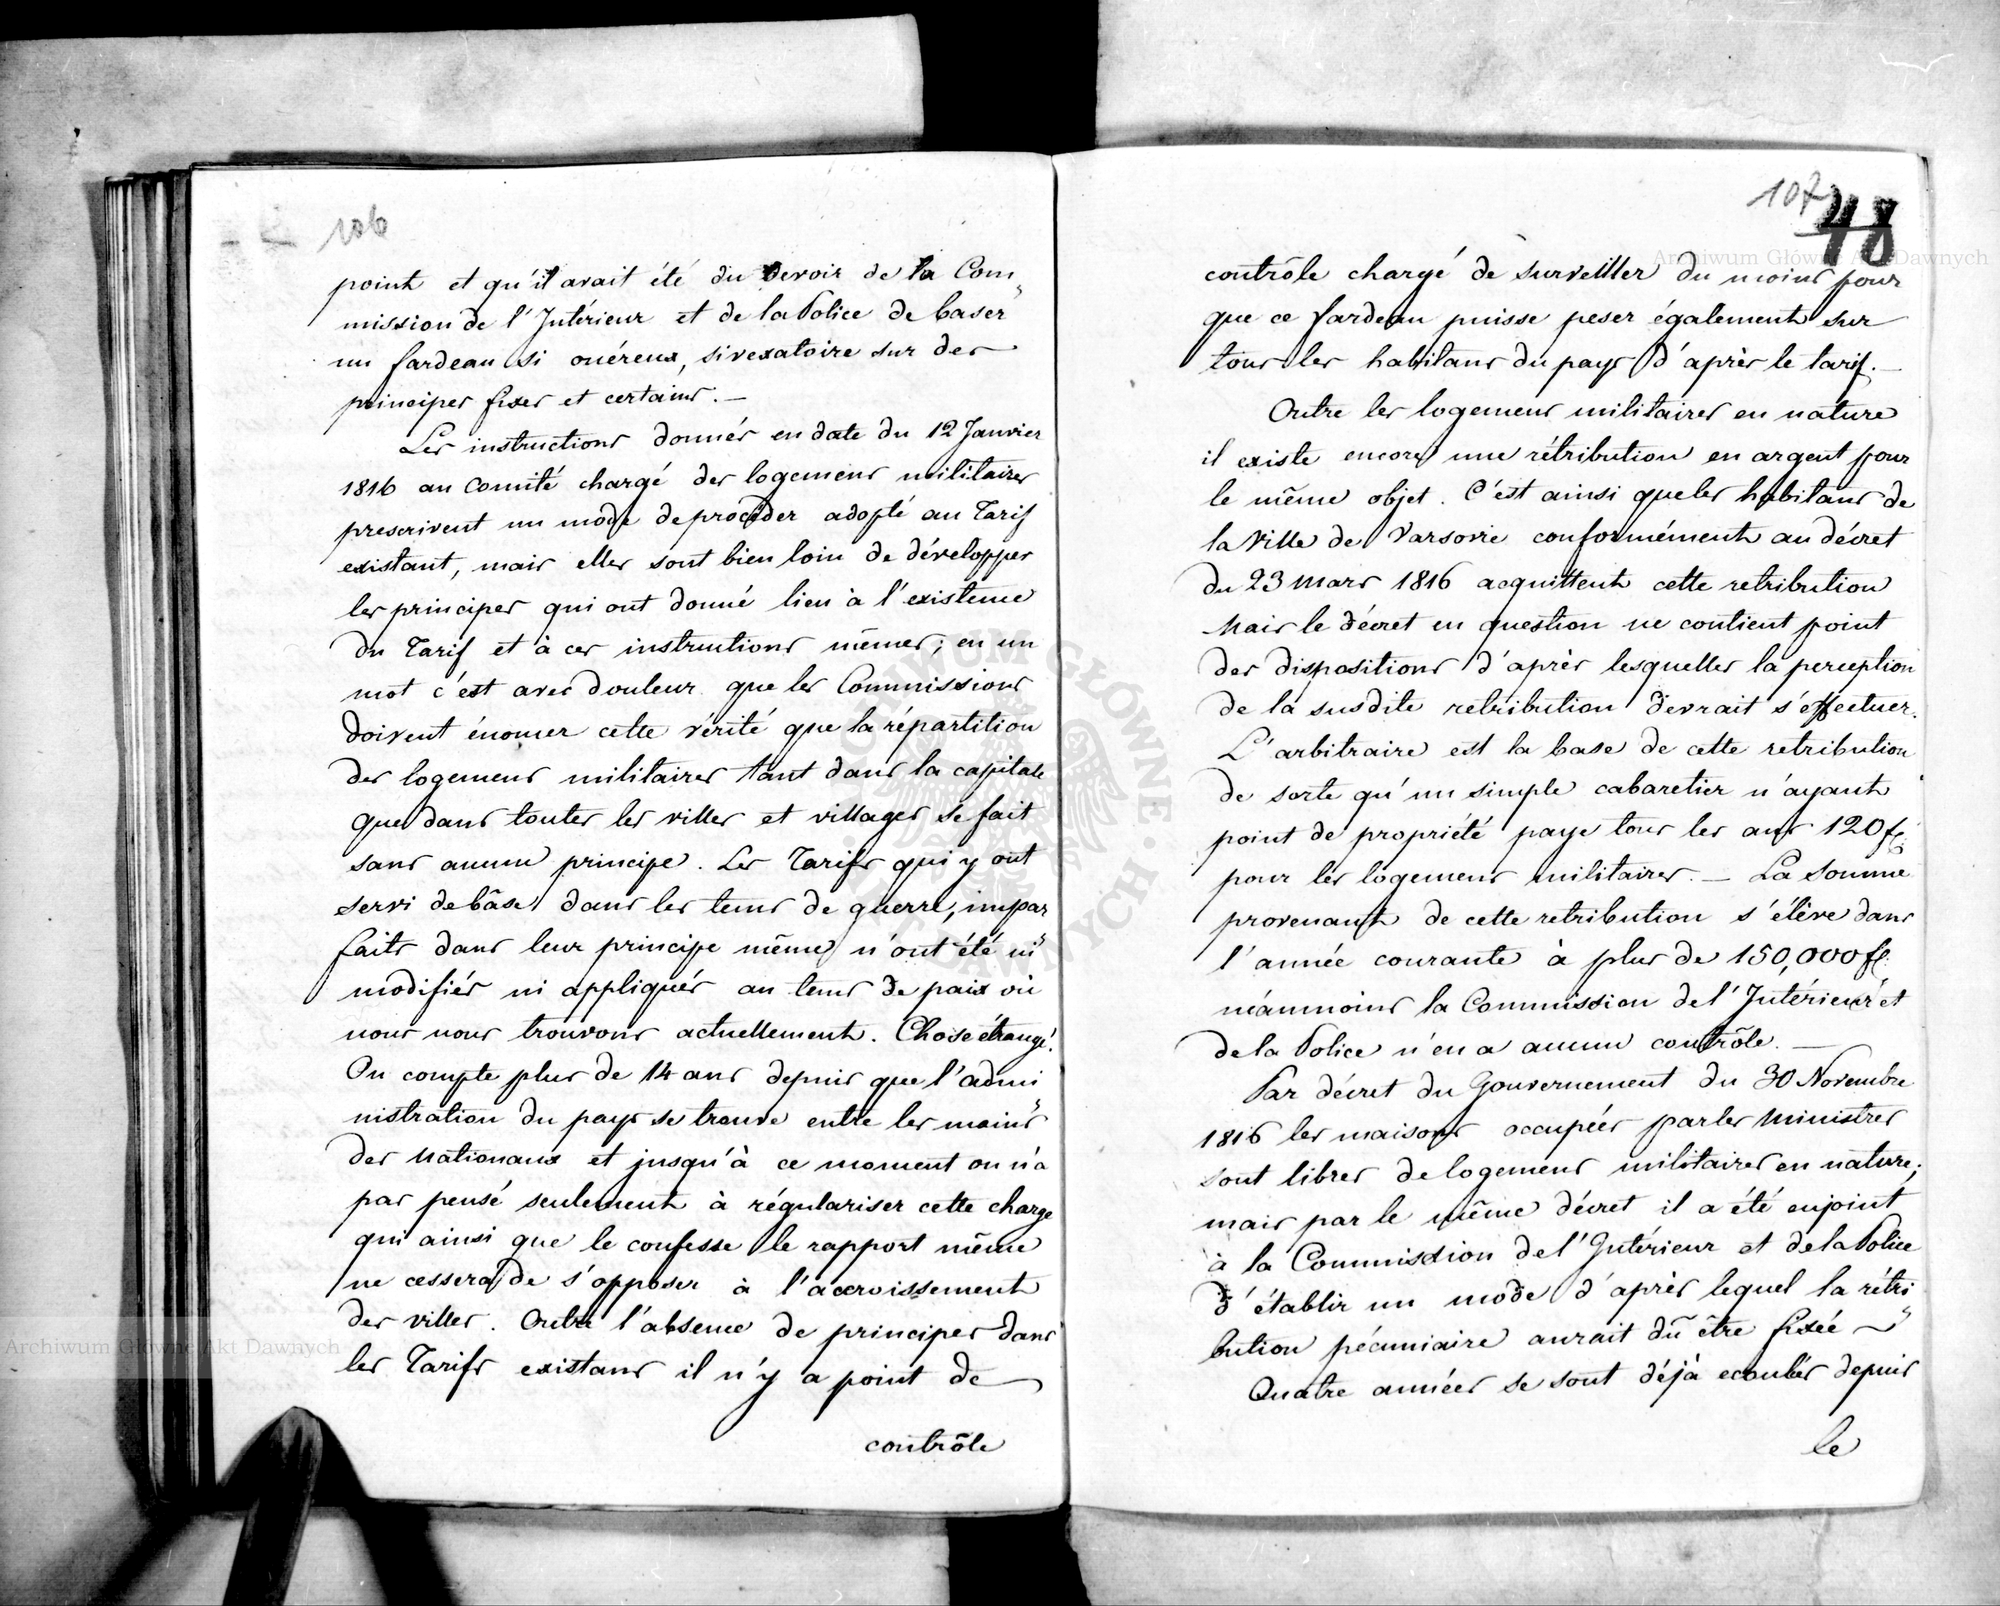 106
point et qu'il avait été du devoir de la Com„
mission de l'Intérieur et de la Police de baser
un fardeau si onéreux, si vexatoire sur des
principes fixes et certains. —
Les instructions donnés en date du 12 Janvier
1816 au Comité chargé des logemens militaires
prescrivent un mode de procéder adopté au Tarif
existant, mais elles sont bien loin de développer
les principes qui ont donné lieu à l'existence
du Tarif et à ces instructions mêmes; en un
mot c'est avec douleur que les Commissions
doivent énoncer cette vérité que la répartition
des logemens militaires tant dans la capitale
que dans toutes les villes et villages se fait
sans aucun principe. Les Tarifs qui y ont
servi de bâse dans les tems de guerre, impar
faits dans leur principe même n'ont été ni
modifiés ni appliqués au tems de paix où
nous nous trouvons actuellement. Chose étrange!
On compte plus de 14 ans depuis que l'admi
nistration du pays se trouve entre les mains
des Nationaux et jusqu'à ce moment on n'a
pas pensé seulement à régulariser cette charge
qui ainsi que le confesse le rapport même
ne cessera de s'opposer à l'accroissement
des villes. Outre l'absence de principes dans
les Tarifs existans il n'y a point de
contrôle
107
48
contrôle chargé de surveiller du moins pour
que ce fardeau puisse peser également sur
tous les habitans du pays d'après le tarif. —
Outre les logemens militaires en nature
il existe encore une rétribution en argent pour
le même objet. C'est ainsi que les habitans de
la Ville de Varsovie conformément au décret
du 23 Mars 1816 acquittent cette retribution
Mais le décret en question ne contient point
des dispositions d'après lesquelles la perception
de la susdite retribution devrait s'effectuer.
L'arbitraire est la base de cette retribution
de sorte qu'un simple cabaretier n'ayant
point de propriété paye tous les ans 120 fl.
pour les logemens militaires. — La Somme
provenant de cette retribution s'élève dans
l'année courante à plus de 150,000 fl.
néanmoins la Commission de l'Intérieur et
de la Police n'en a aucun contrôle. —
Par décret du Gouvernement du 30 Novembre
1816 les maisons occupées par les Ministres
sont libres de logemens militaires en nature;
mais par le même décret il a été enjoint
à la Commission de l'Intérieur et de la Police
d'établir un mode d'après lequel la rétri
bution pécuniaire aurait dû être fixée —
Quatre années se sont déjà ecoulés depuis
le
Archiwum Główne Akt Dawnych
Archiwum Główne Akt Dawnych
ARCHIWUM GŁÓWNE AKT DAWNYCH